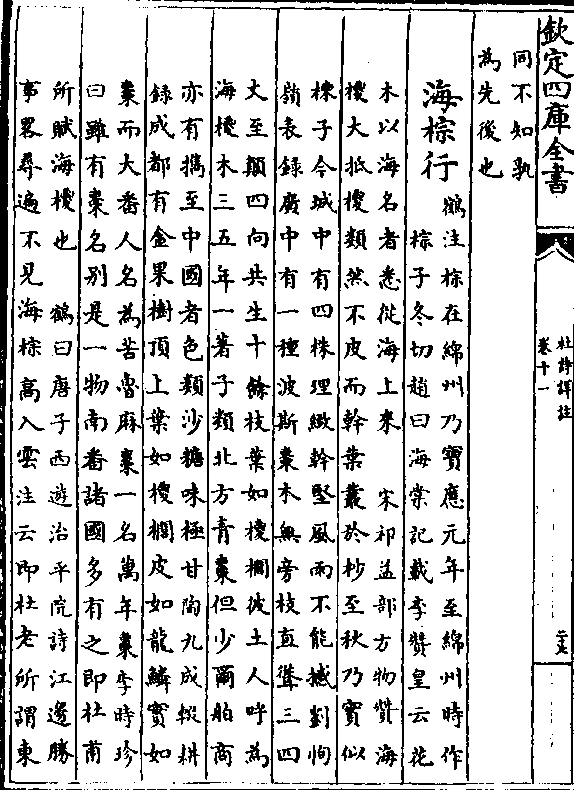 欽定四庫全書
杜詩詳註
卷十一
同不知孰
為先後也
海棕行
鶴注棕在綿州乃寶應元年至綿州時作
棕子冬切趙曰海棠記載李贊皇云花
木以海名者悉從海上來　宋祁益部方物贊海
椶大抵椶類然不皮而幹葉叢於杪至秋乃實似
楝子今城中有四株理緻幹堅風雨不能撼劉恂
嶺表錄廣中有一種波斯棗木無旁枝直聳三四
丈至顛四向共生十餘枝葉如椶櫚彼土人呼為
海椶木三五年一著子類北方青棗但少爾舶商
亦有攜至中國者色類沙糖味極甘陶九成輟耕
錄成都有金果樹頂上葉如椶櫚皮如龍鱗實如
棗而大番人名為苦魯麻棗一名萬年棗李時珍
曰雖有棗名别是一物南番諸國多有之即杜甫
所賦海椶也　鶴曰唐子西遊治平院詩江邊勝
事畧尋遍不見海棕高入雲注云即杜老所謂東